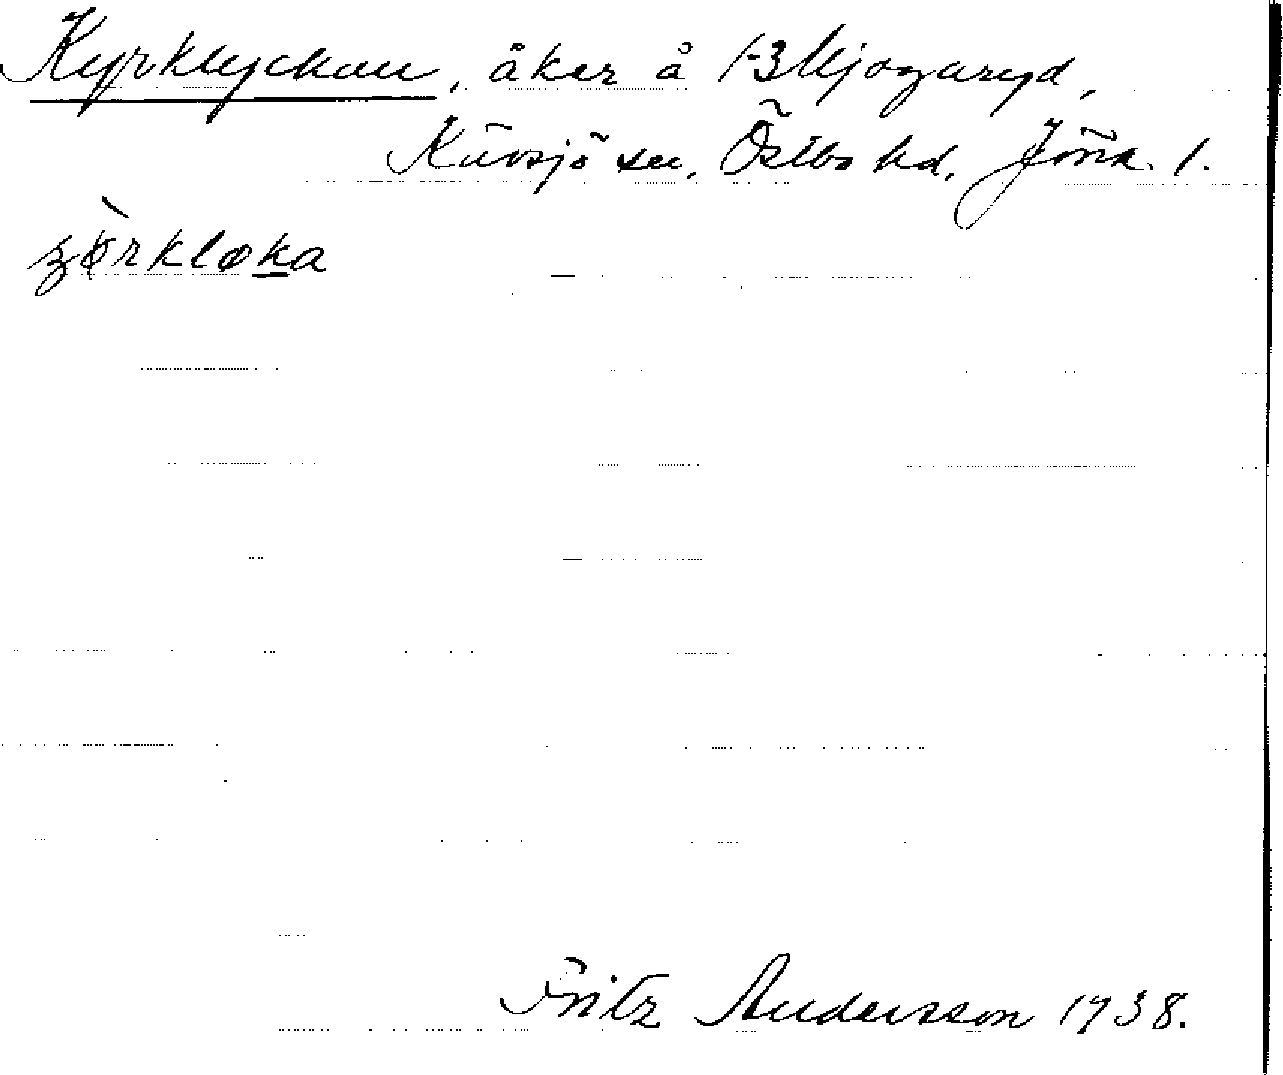 Kyrklyckan, åker å 1-3 Mjogaryd,
Kävsjö sn, Östbo hd, Jönk. l.
Fritz Andersson 1938.